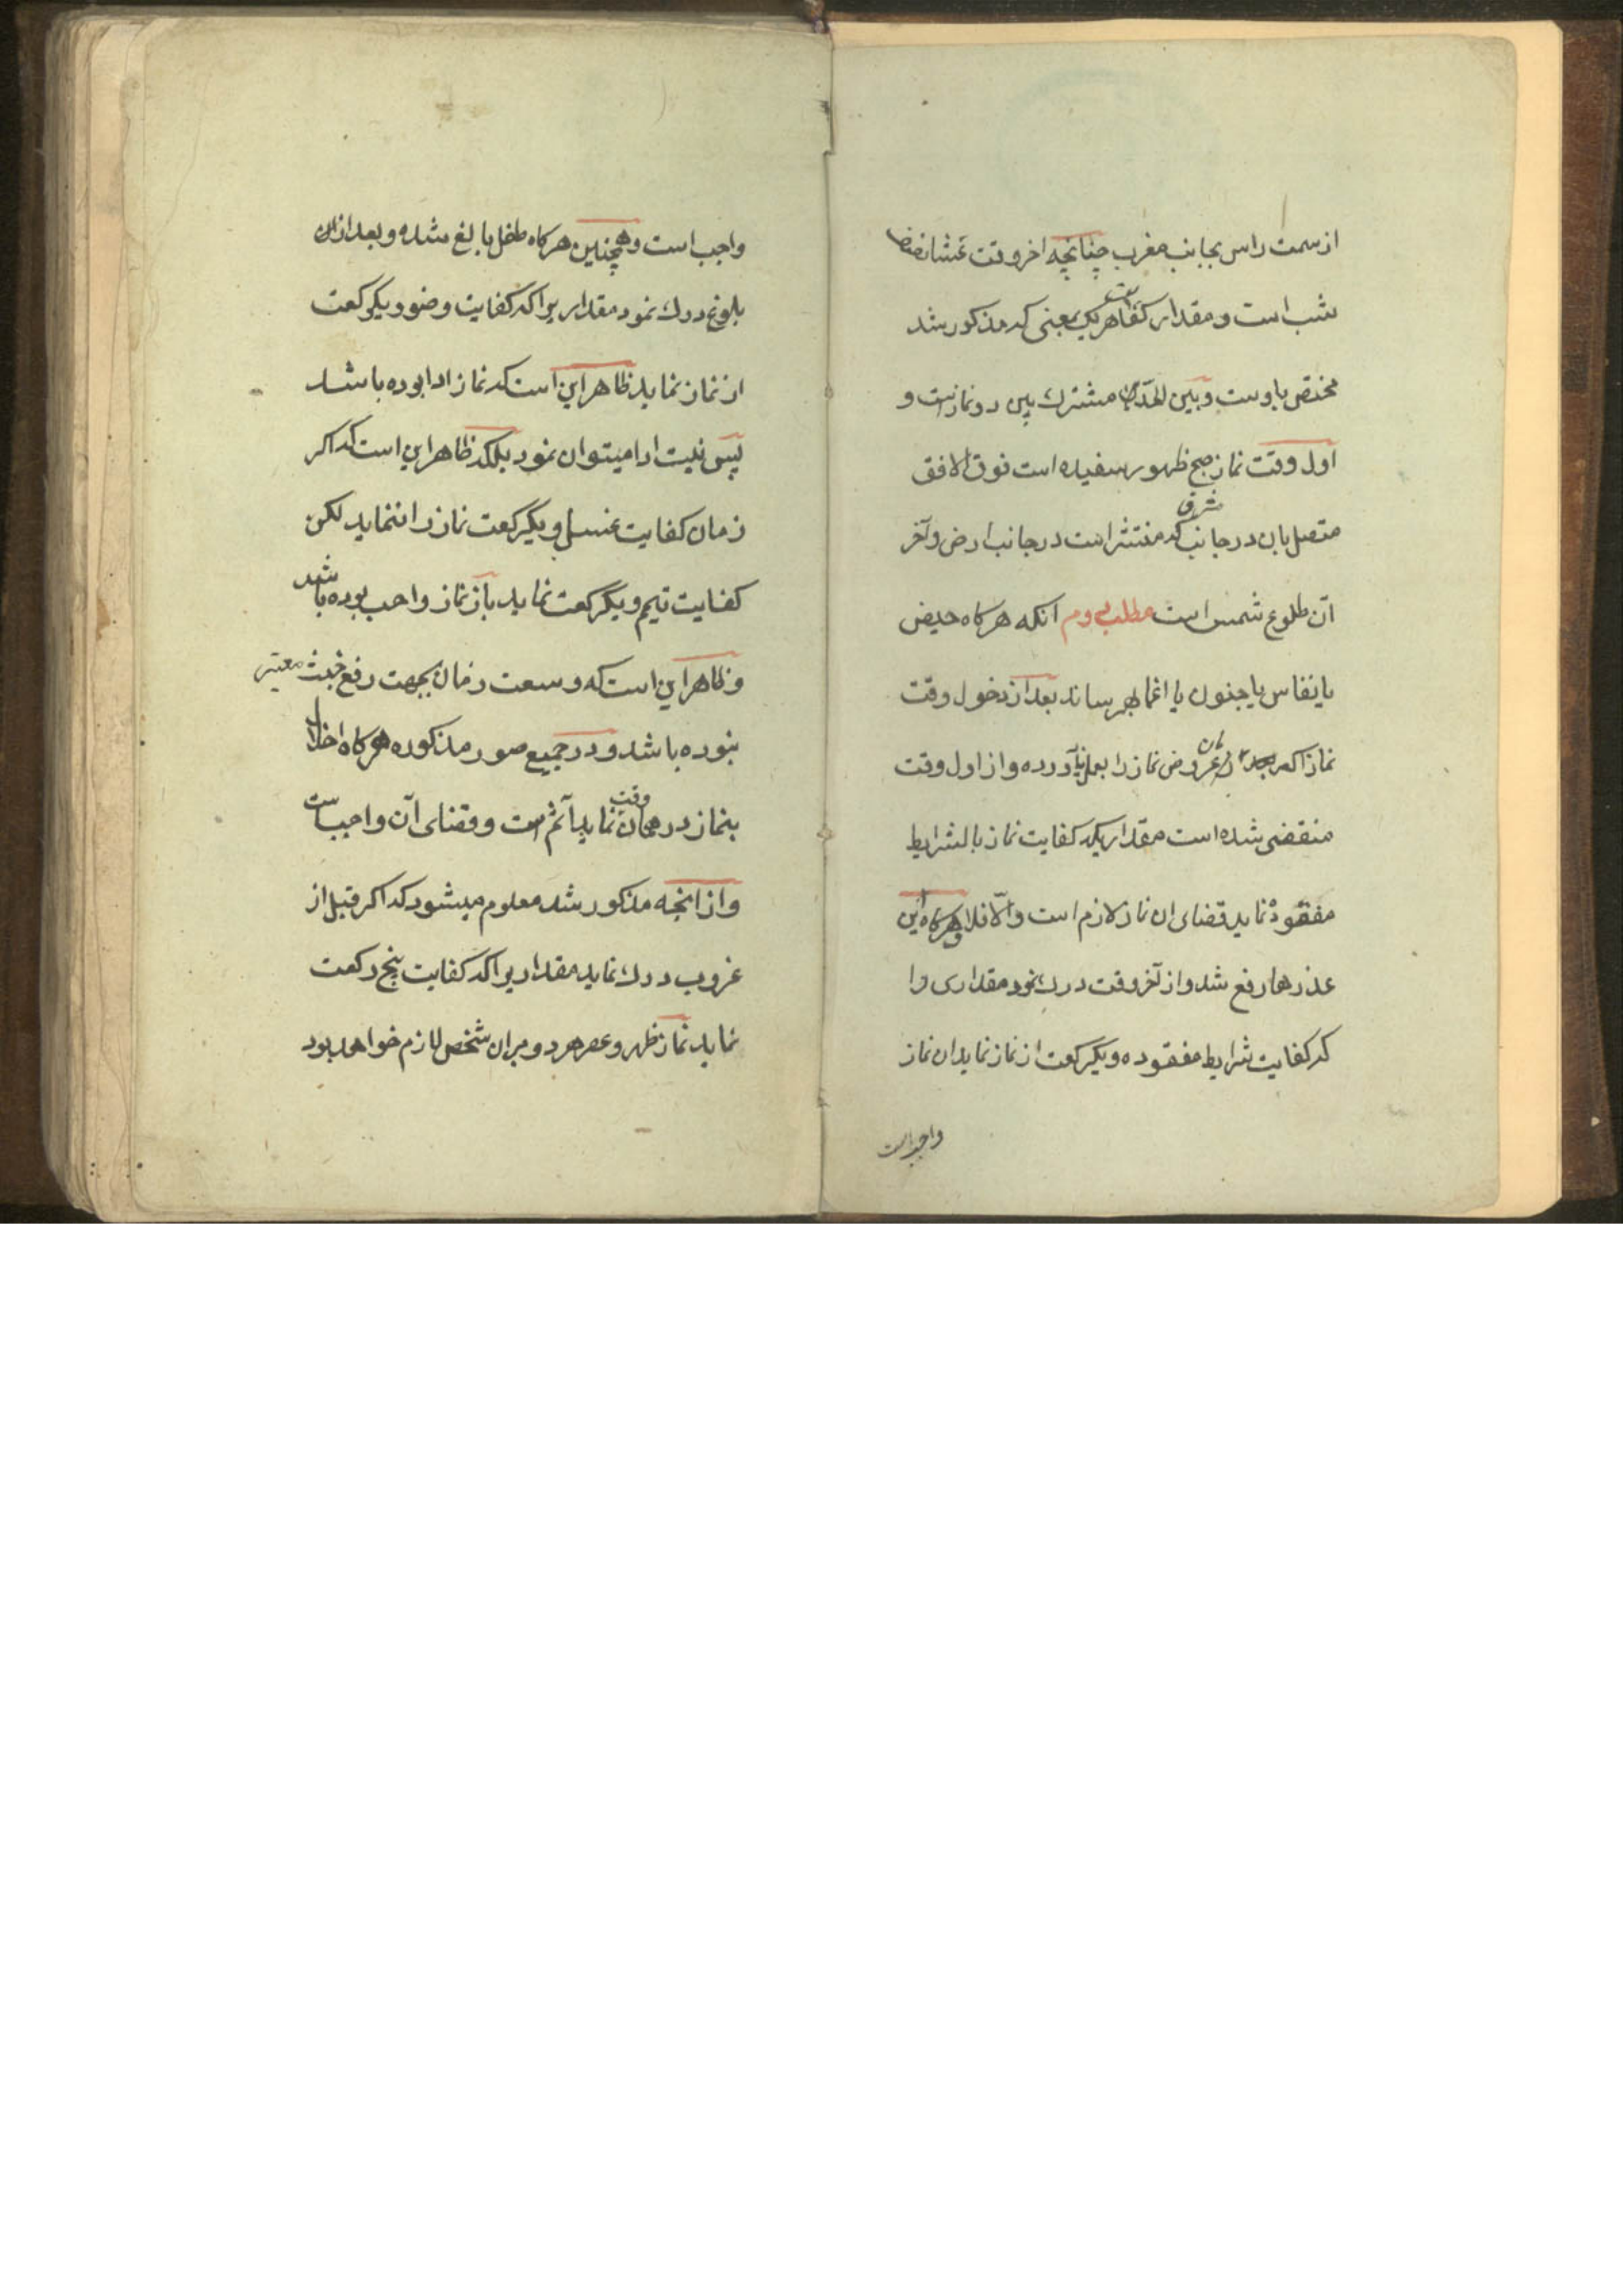 از سمت راس بجانب مغرب چنانچه اخر وقت عشا انقضا
شب است و مقدار کفایت هر یک بمعنی که مذکور شد
مختص باوست و بین الحدین مشترک بین دو نماز است و
اول وقت نماز صبح ظهور سفیده است فوق الافق
متصل بان در جانب مشرق که منتشر است در جانب ارض و آخر
آن طلوع شمس است مطلب دوم انکه هر کاه حیض
یا نفاس یا جنون یا اغما بهم رساند بعد از دخول وقت
نماز اکر عروض ان نماز را بعمل نیاورده و از اول وقت
منقضی شده است مقداریکه کفایت نماز با لشرایط
مفقوده نماید قضای ان نماز لازم است و الّا فلا و هرکاه این
عذرها رفع شد و از آخر وقت درک نمود مقداری را
که کفایت شرایط مفقوده و یکرکعت از نماز نماید ان نماز
واجب است
واجب است و همچنین هرکاه طفل بالغ شده و بعد از ان
بلوغ درک نمود مقداریرا که کفایت وضو و یکرکعت
از نماز نماید ظاهر این است که نماز ادا بوده باشد
پس نیت ادا میتوان نمود بلکه ظاهر این است که اکر
زمان کفایت غسل و یکرکعت نماز را ننماید لکن
کفایت تیمم و یکرکعت نماید باز نماز واجب بوده باشد
و ظاهر این است که وسعت زمان بجهت رفع خبث معتبر
نبوده باشد و در جمیع صور مذکوره هرکاه اخلال
بنماز در همان وقت نماید آثم است و قضای آن واجب است
و از انچه مذکور شد معلوم میشود که اکر قبل از
غروب درک نماید مقداریرا که کفایت پنج رکعت
نماید نماز ظهر و عصر هر دو بران شخص لازم خواهد بود